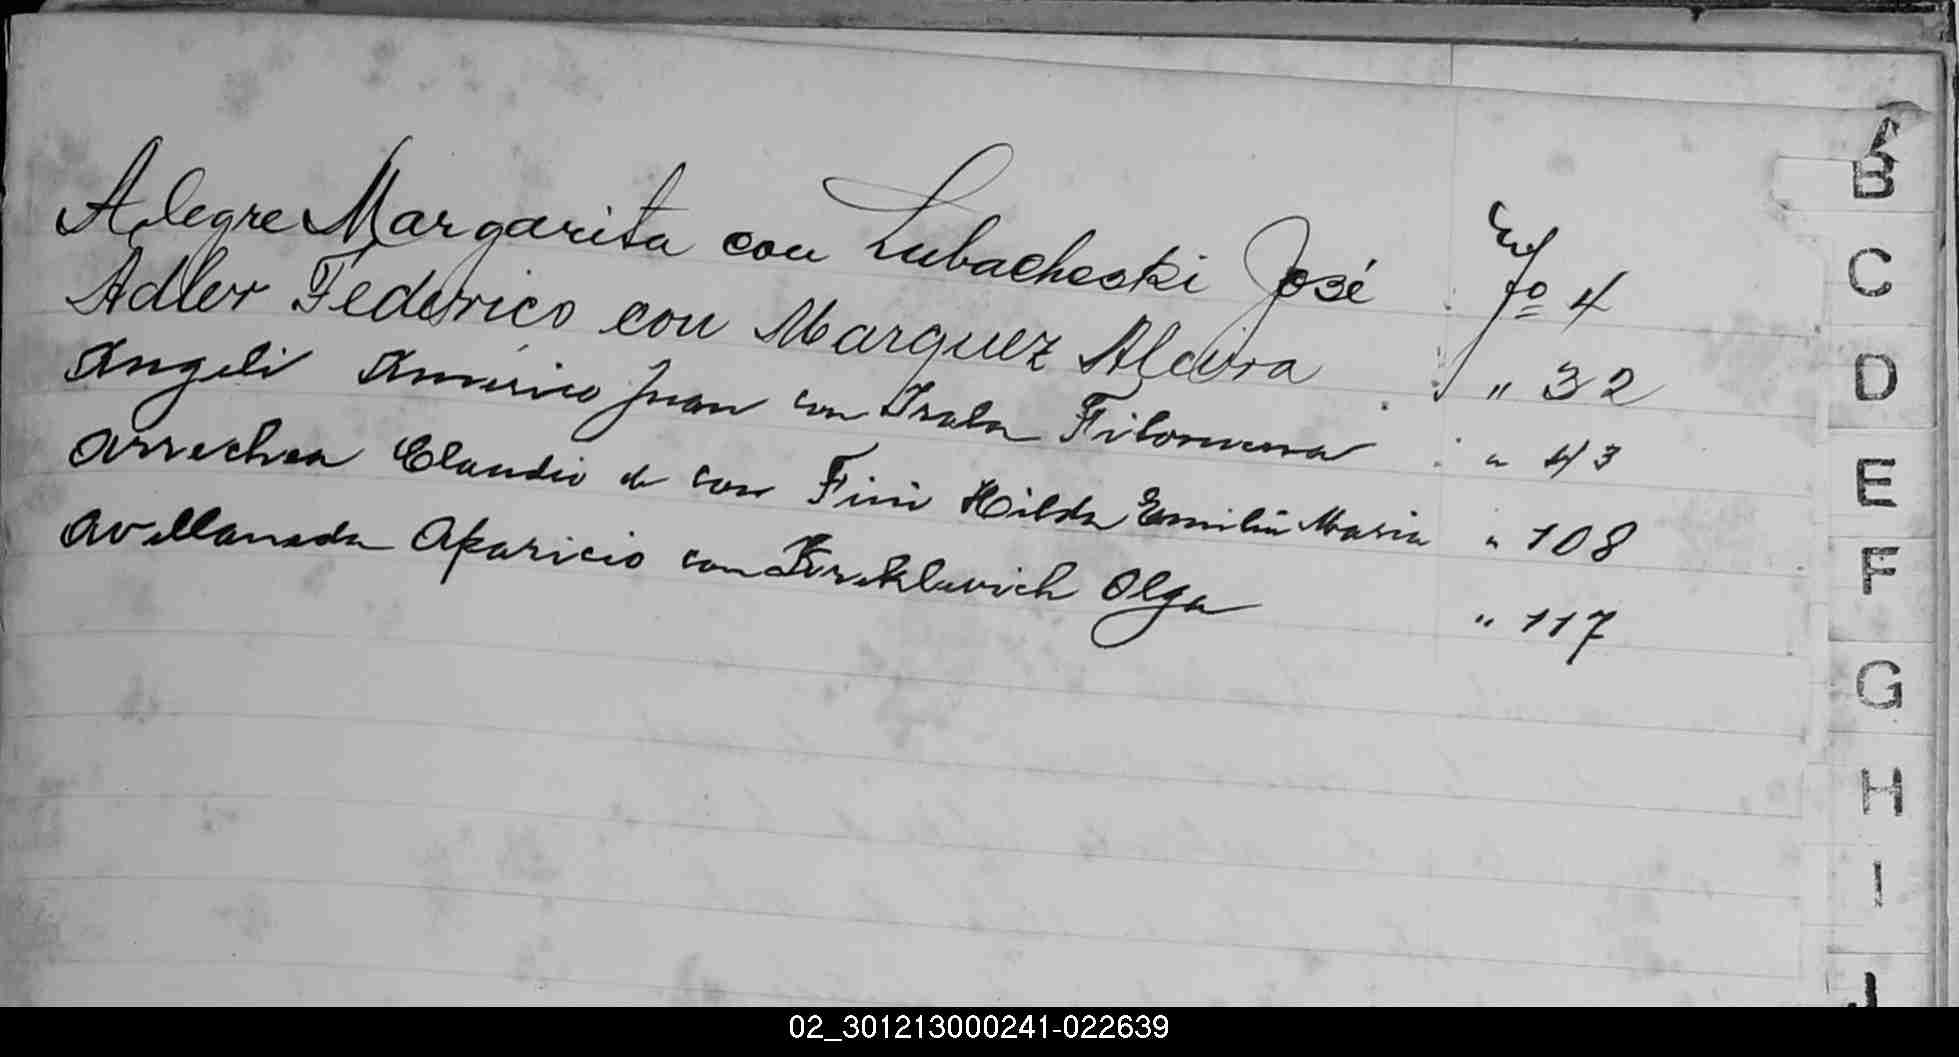 Alegre Margarita con Lubacheski José fº 4
Adler Federico con Marquez Alcira " 32
Angeli Américo Juan con Irala Filomena " 43
Arrechea Claudio de con Fini Hilda Emilia Maria " 108
Avellaneda Aparicio con Olga " 117
A
B
C
D
E
F
G
H
I
J
02_301213000241-022639